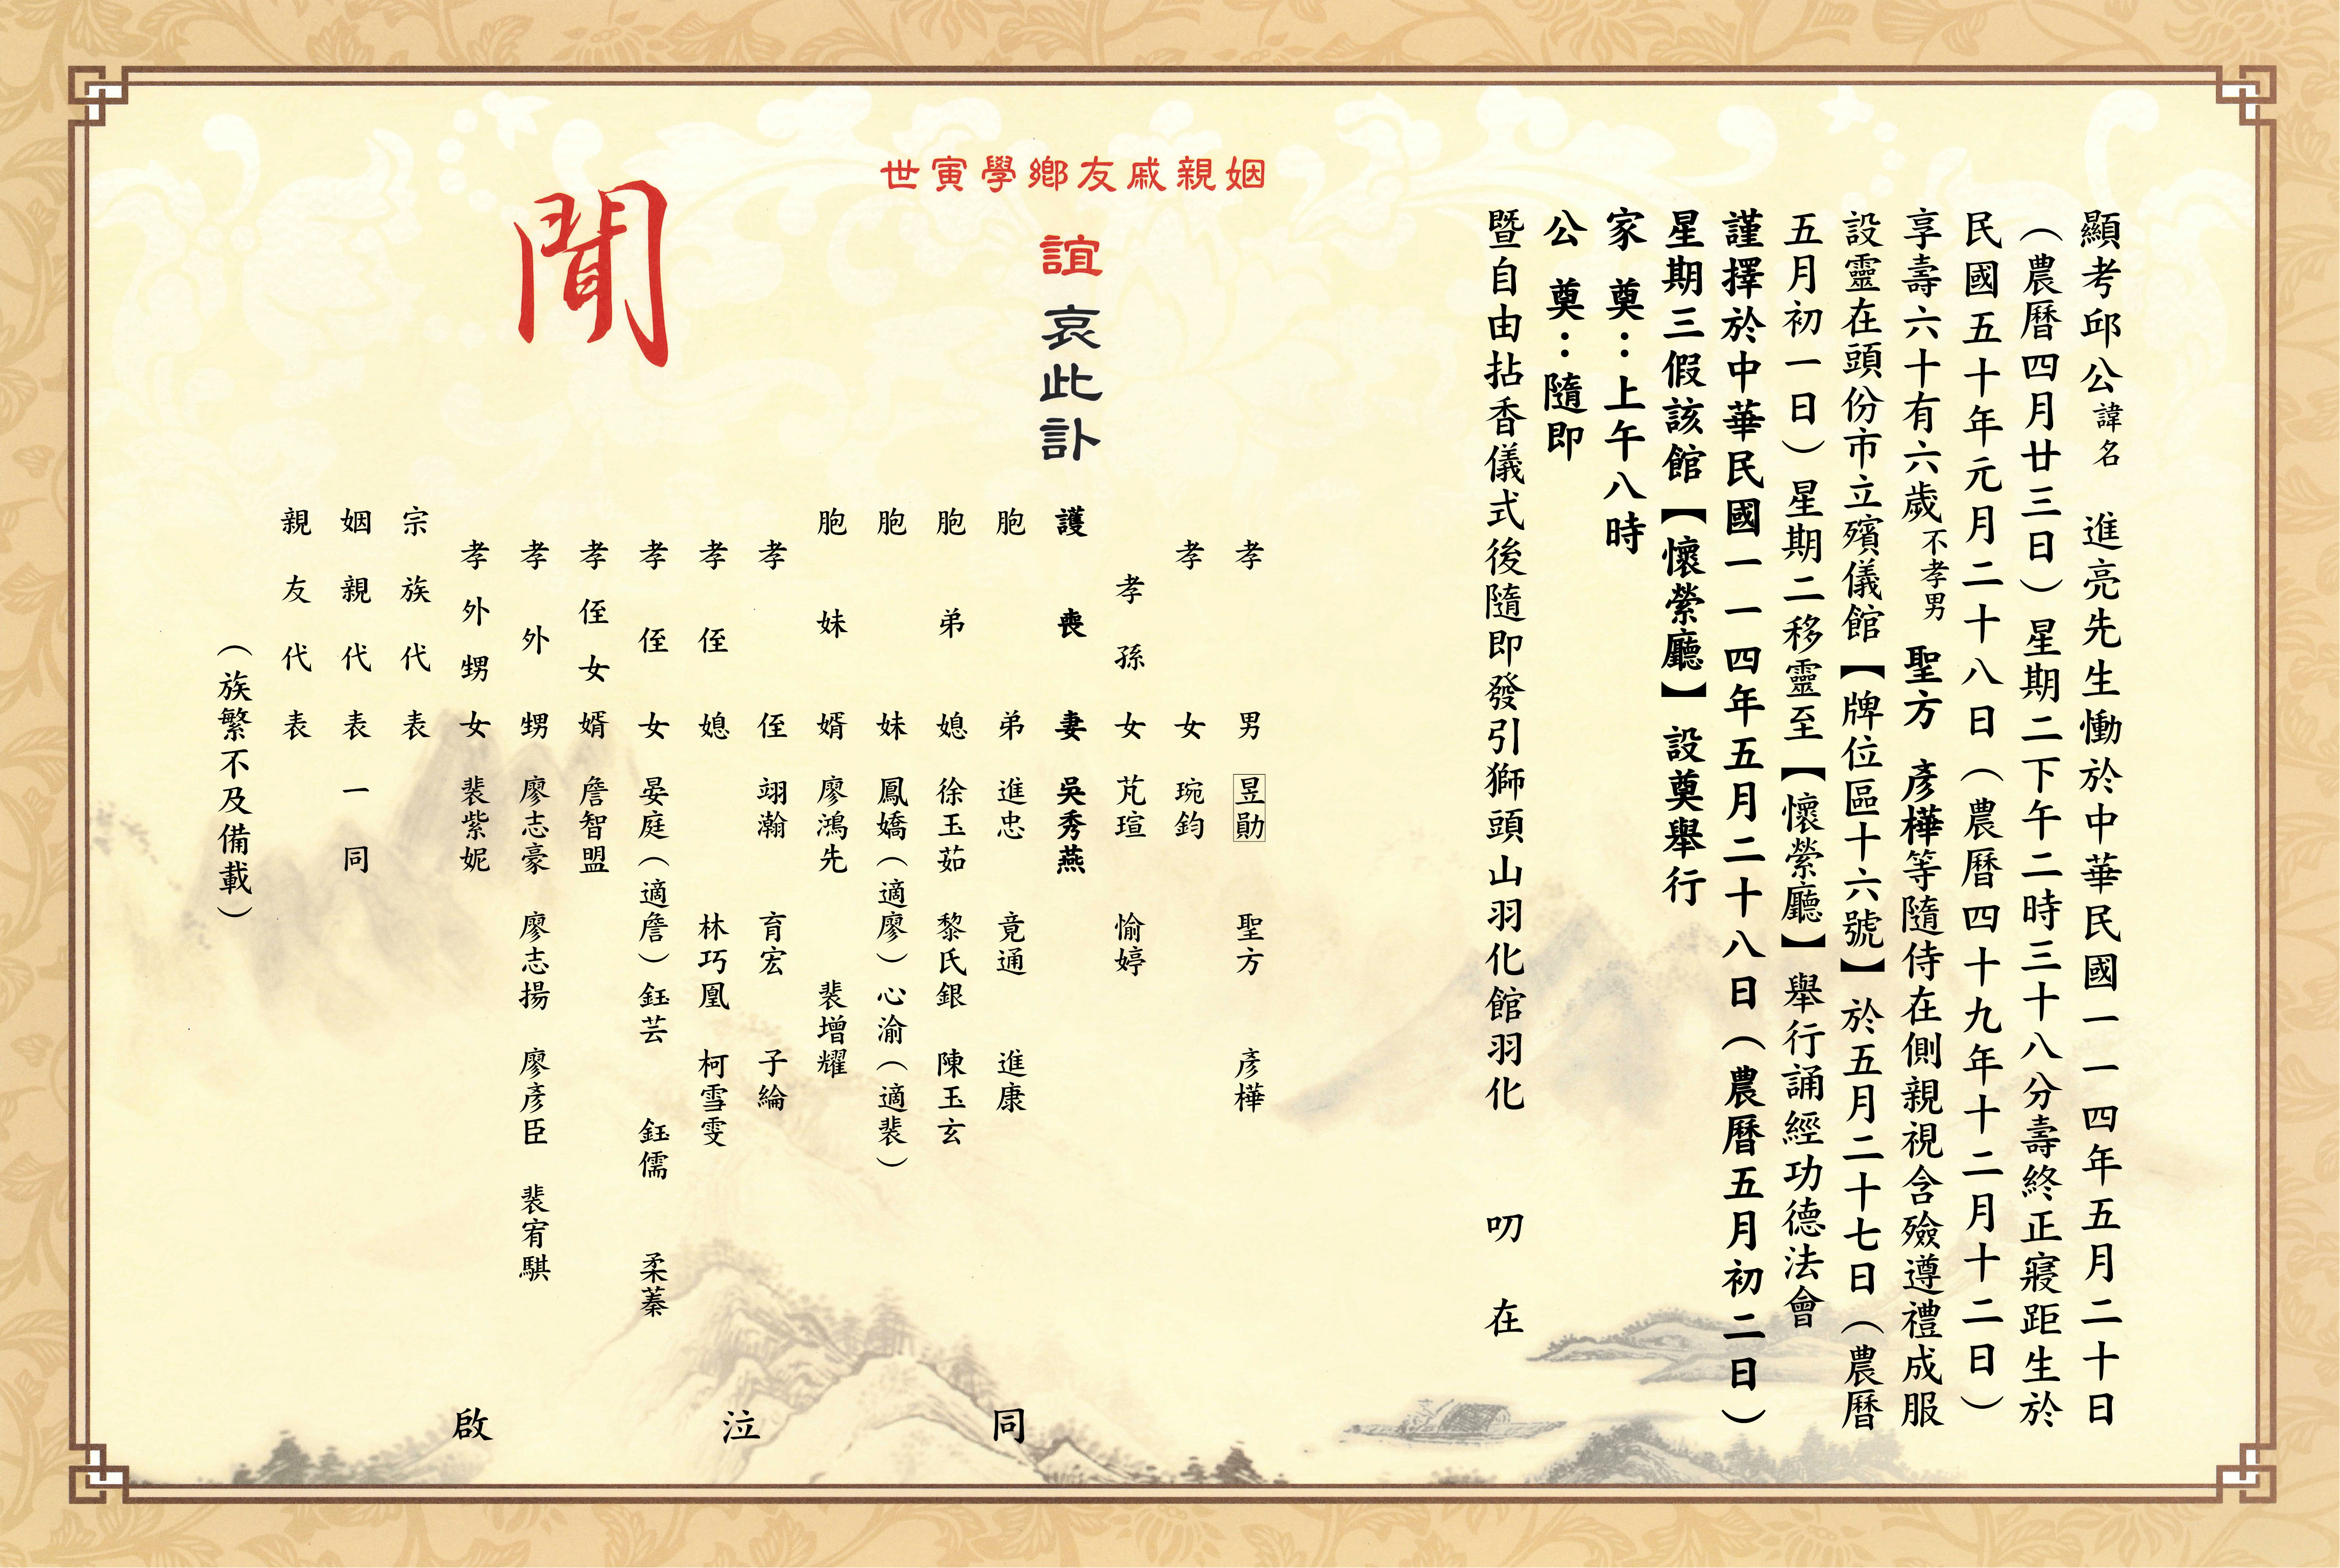 顯考邱公諱名 進亮先生慟於中華民國一一四年五月二十日
（農曆四月廿三日）星期二下午二時三十八分壽終正寢距生於
民國五十年元月二十八日（農曆四十九年十二月十二日）
享壽六十有六歲不孝男 聖方 彥樺等隨侍在側親視含殮遵禮成服
設靈在頭份市立殯儀館【牌位區十六號】於五月二十七日（農曆
五月初一日）星期二移靈至【懷縈廳】舉行誦經功德法會
謹擇於中華民國一一四年五月二十八日（農曆五月初二日）
星期三假該館【懷縈廳】設奠舉行
家 奠：上午八時
公 奠：隨即
暨自由拈香儀式後隨即發引獅頭山羽化館羽化 叨 在
姻親戚友鄉學寅世
誼 哀此訃
聞
孝男 昱勛 聖方 彥樺
孝女 琬鈞
孝孫女 芃瑄 愉婷
護喪妻 吳秀燕
胞弟 進忠 竟通 進康
胞弟媳 徐玉茹 黎氏銀 陳玉玄
胞妹 鳳嬌（適廖）心渝（適裴）
胞妹婿 廖鴻先 裴增耀
孝侄 翊瀚 育宏 子綸
孝侄媳 林巧凰 柯雪雯
孝侄女 晏庭（適詹）鈺芸 鈺儒 柔蓁
孝侄女婿 詹智盟
孝外甥 廖志豪 廖志揚 廖彥臣 裴宥騏
孝外甥女 裴紫妮
宗族代表
姻親代表一同
親友代表
（族繁不及備載）
同 泣 啟